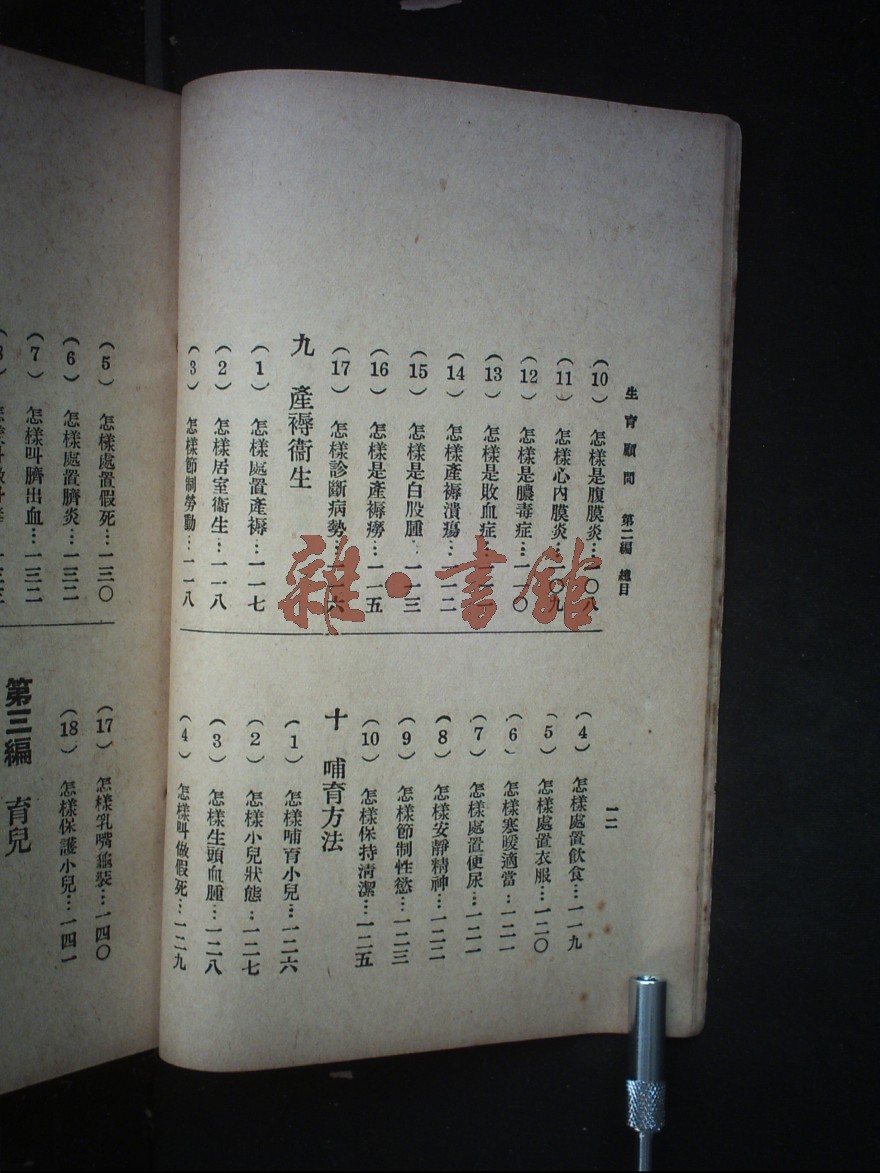 生育顧問 第二編 總目
一二
(10) 怎樣是腹膜炎…一〇八
(11) 怎樣心內膜炎…一〇九
(12) 怎樣是膿毒症…一一〇
(13) 怎樣是敗血症…一一一
(14) 怎樣產褥潰瘍…一一二
(15) 怎樣是白股腫…一一三
(16) 怎樣是產褥癆…一一五
(17) 怎樣診斷病勢…一一六
九 產褥衞生
(1) 怎樣處置產褥…一一七
(2) 怎樣居室衞生…一一八
(3) 怎樣節制勞動…一一八
(4) 怎樣處置飲食…一一九
(5) 怎樣處置衣服…一二〇
(6) 怎樣寒暖適當…一二一
(7) 怎樣處置便尿…一二一
(8) 怎樣安靜精神…一二二
(9) 怎樣節制性慾…一二三
(10) 怎樣保持清潔…一二五
十 哺育方法
(1) 怎樣哺育小兒…一二六
(2) 怎樣小兒狀態…一二七
(3) 怎樣生頭血腫…一二八
(4) 怎樣叫做假死…一二九
(5) 怎樣處置假死…一三〇
(6) 怎樣處置臍炎…一三二
(7) 怎樣叫臍出血…一三二
(17) 怎樣乳嘴龜裂…一四〇
(18) 怎樣保護小兒…一四一
第三編 育兒
雜·書館